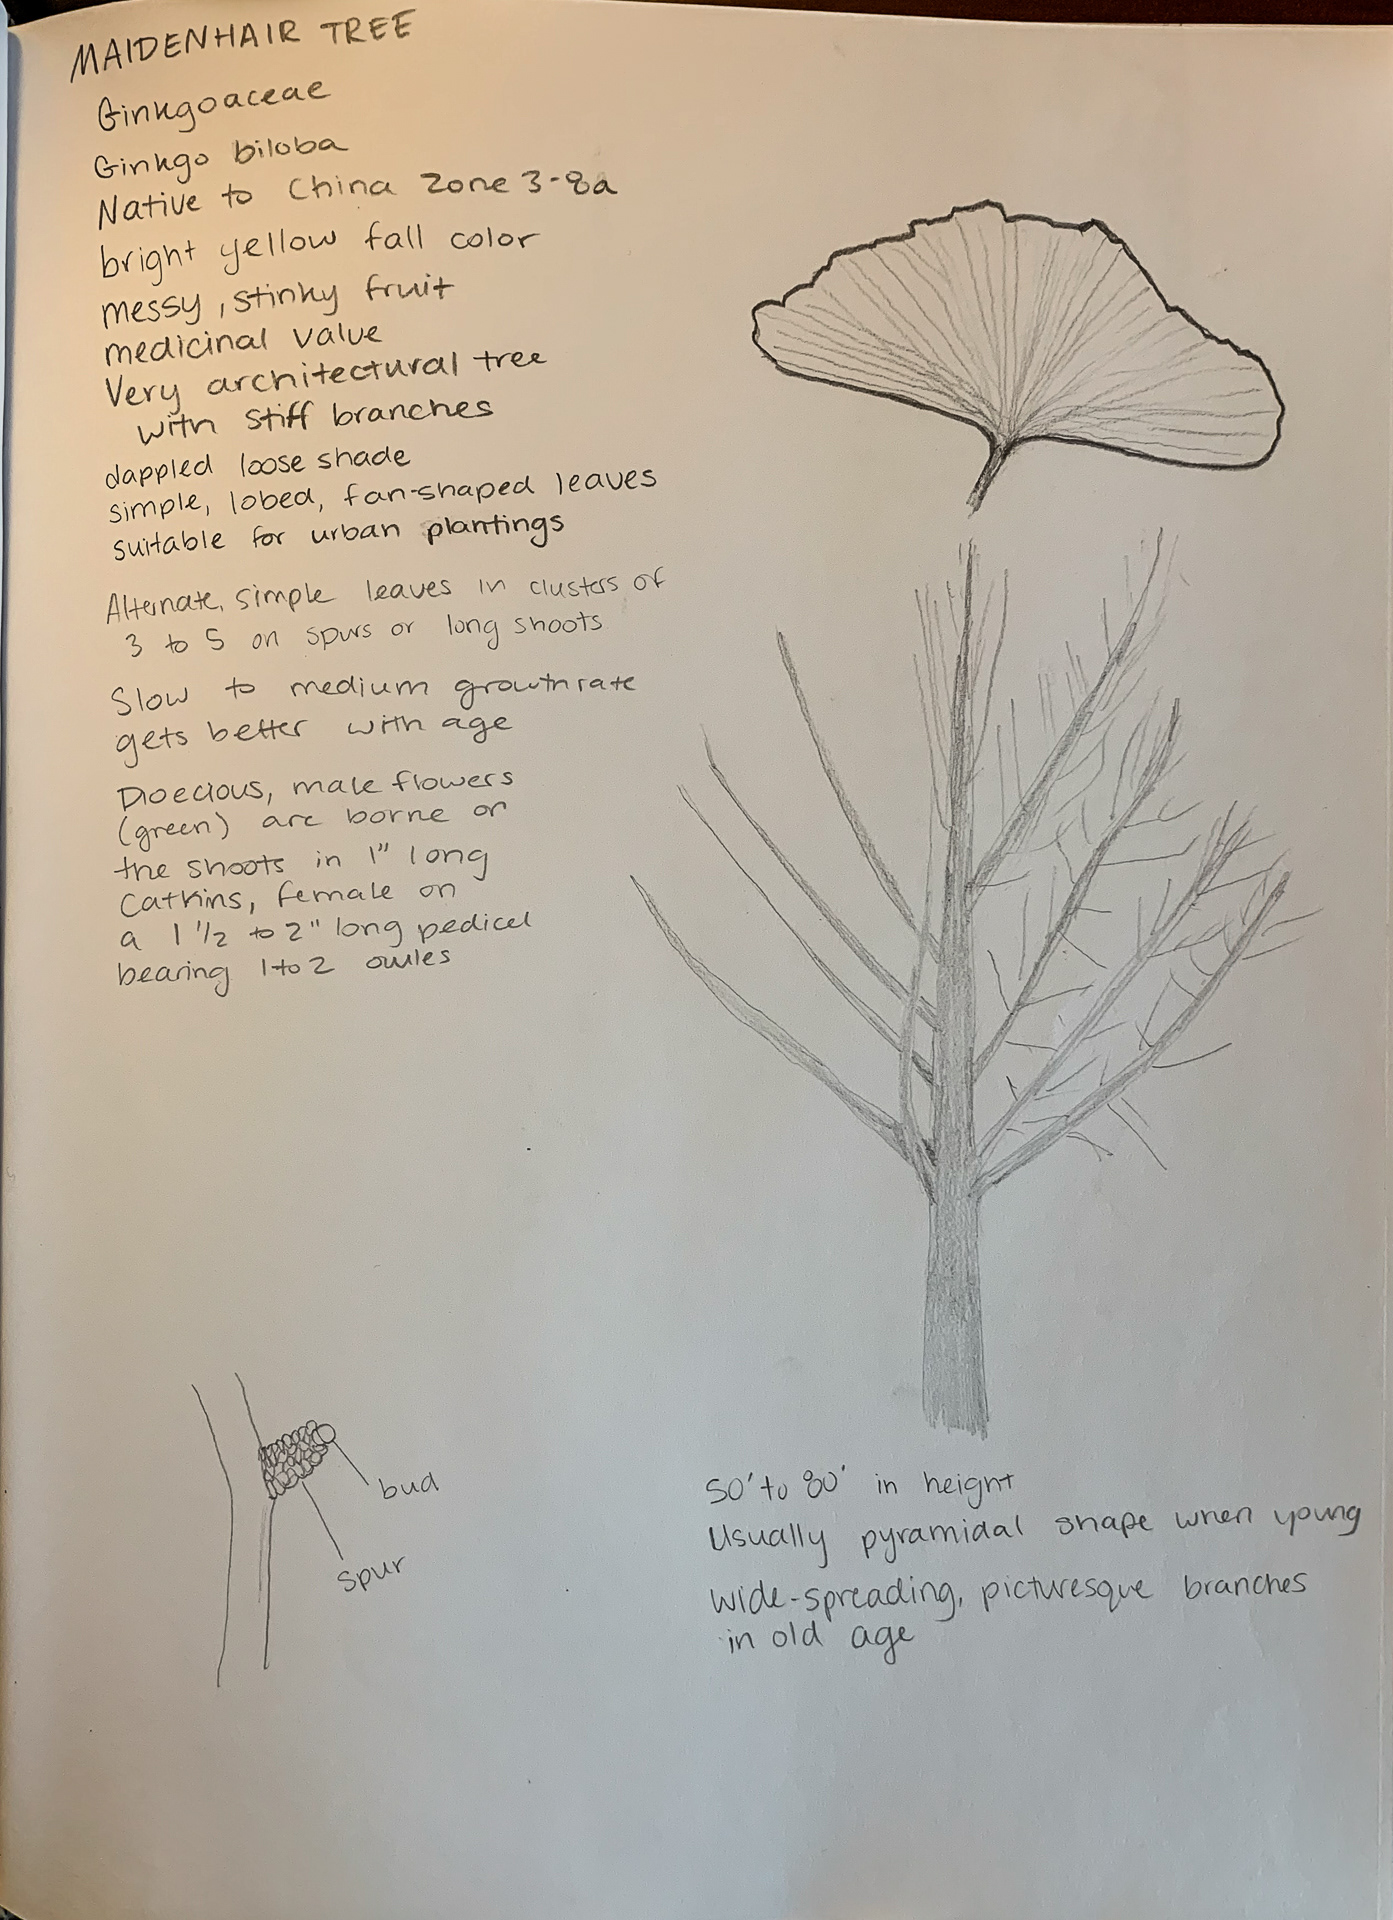 MAIDENHAIR TREE
Ginkgoaceae
Ginkgo biloba
Native to China Zone 3-8a
bright yellow fall color
messy, stinky fruit
medicinal value
Very architectural tree
with stiff branches
dappled loose shade
simple, lobed, fan-shaped leaves
suitable for urban plantings
Alternate, simple leaves in clusters of
3 to 5 on spurs or long shoots
Slow to medium growth rate
gets better with age
Dioecious, male flowers
(green) are borne on
the shoots in 1" long
catkins, female on
a 1 1/2 to 2" long pedicel
bearing 1 to 2 ovules
bud
spur
50' to 80' in height
Usually pyramidal shape when young
wide-spreading, picturesque branches
in old age